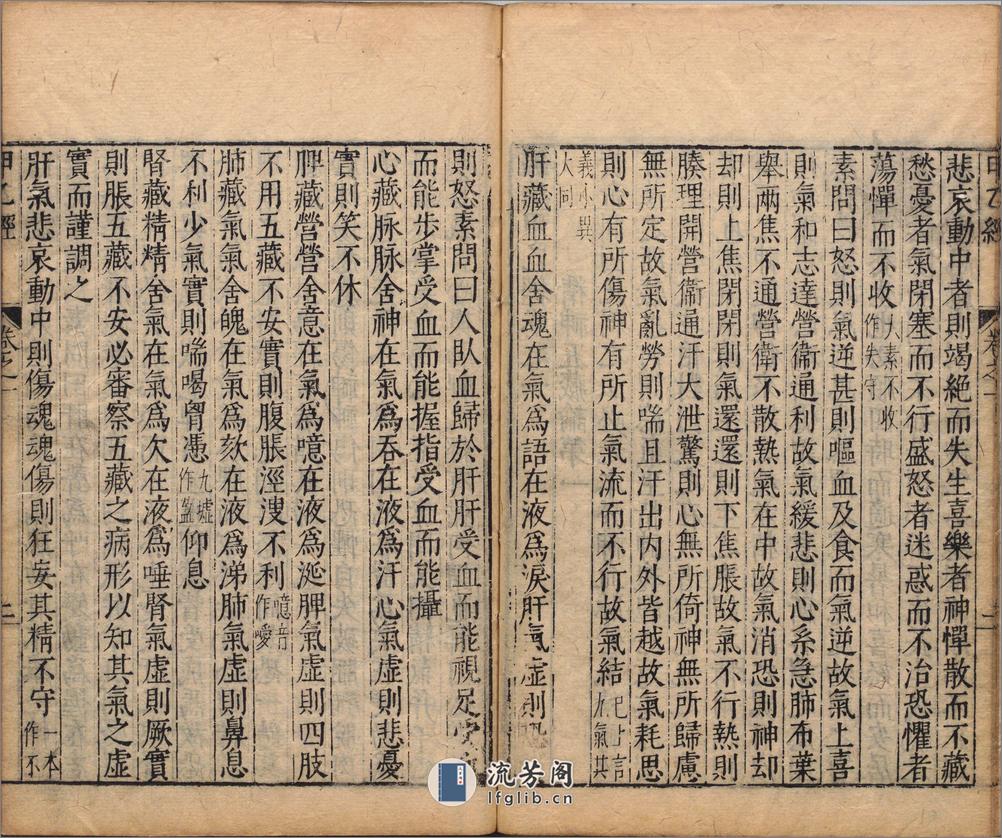 悲哀動中者則竭絕而失生喜樂者神憚散而不藏
愁憂者氣閉塞而不行盛怒者迷惑而不治恐懼者
蕩憚而不收太素不收作失守
素問曰怒則氣逆甚則嘔血及食而氣逆故氣上喜
則氣和志達營衞通利故氣緩悲則心系急肺布葉
舉兩焦不通營衛不散熱氣在中故氣消恐則神却
却則上焦閉閉則氣還還則下焦脹故氣不行熱則
腠理開營衞通汗大泄驚則心無所倚神無所歸慮
無所定故氣亂勞則喘且汗出內外皆越故氣耗思
則心有所傷神有所止氣流而不行故氣結已上言九氣其
義小異大同
肝藏血血舍魂在氣爲語在液爲淚肝氣虛則
甲乙經
卷之一
二
則怒素問曰人臥血歸於肝肝受血而能視足受
而能步掌受血而能握指受血而能攝
心藏脉脉舍神在氣爲吞在液爲汗心氣虛則悲憂
實則笑不休
脾藏營營舍意在氣爲噫在液爲涎脾氣虛則四肢
不用五藏不安實則腹脹涇溲不利噫音作噯
肺藏氣氣舍魄在氣爲欬在液爲涕肺氣虛則鼻息
不利少氣實則喘喝胷憑九墟作盈仰息
腎藏精精舍氣在氣爲欠在液爲唾腎氣虛則厥實
則脹五藏不安必審察五藏之病形以知其氣之虛
實而謹調之
肝氣悲哀動中則傷魂魂傷則狂妄其精不守一本作不
甲乙經
卷之一
二
流芳阁
lfglib.cn